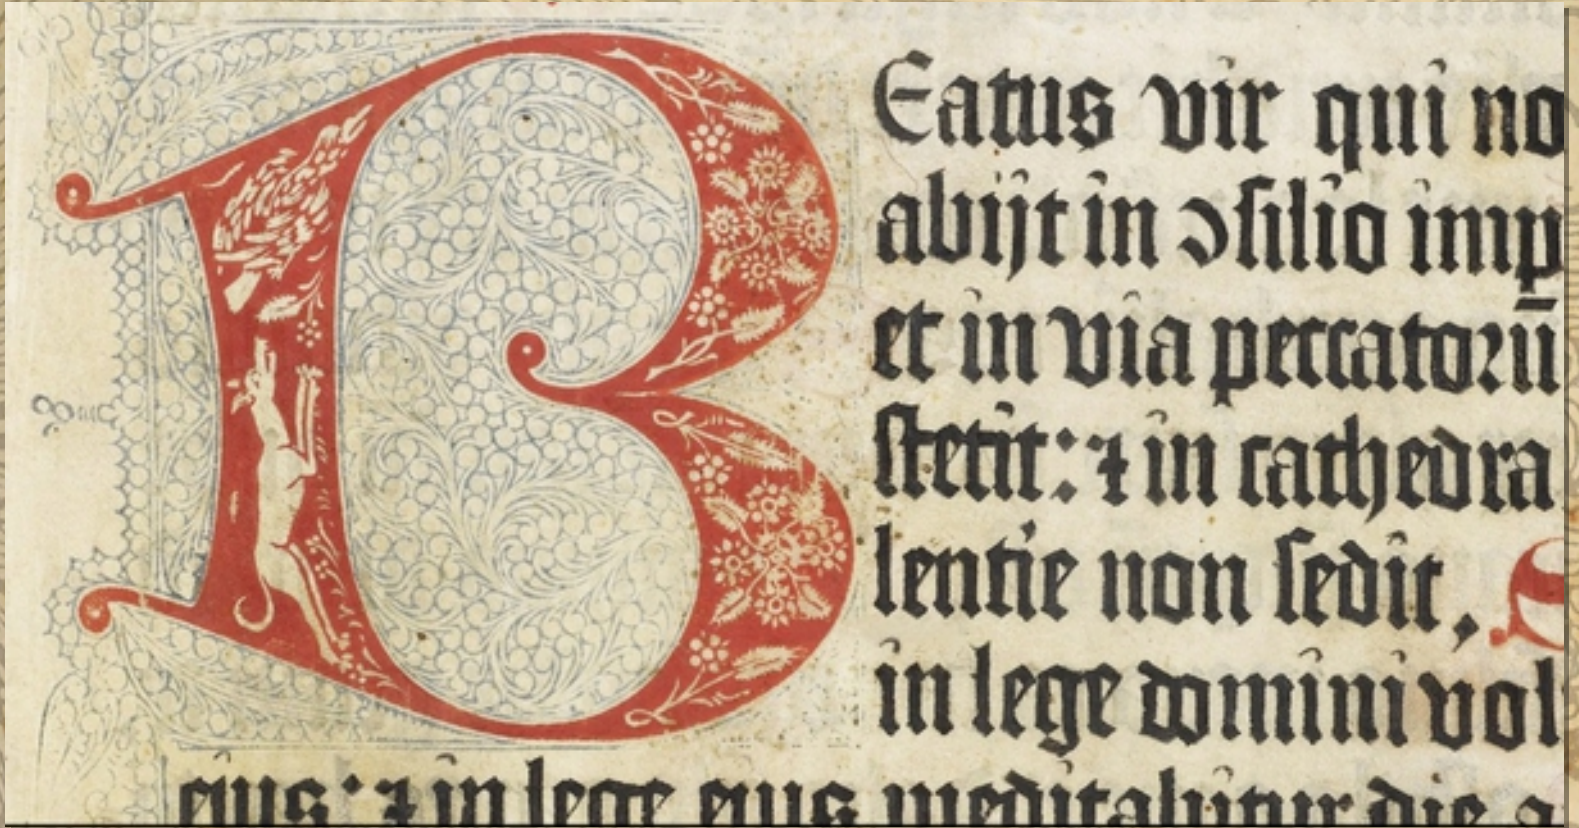 BEatus vir qui no
abijt in ↄſilio imp
et in via peccatorū
ſtetit: ⁊ in cathedra
lentie non ſedit,
in lege domini vol
eius: ⁊ in lege eius meditabitur die a